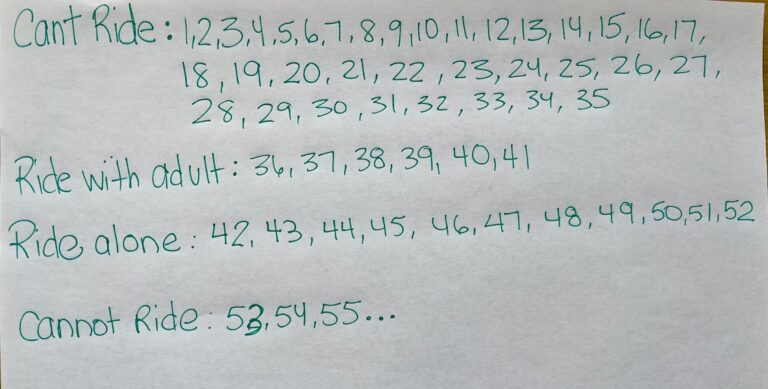 Cant Ride: 1,2,3,4,5,6,7,8,9,10,11,12,13,14,15,16,17,
18,19,20,21,22,23,24,25,26,27,
28,29,30,31,32,33,34,35
Ride with adult: 36,37,38,39,40,41
Ride alone: 42,43,44,45,46,47,48,49,50,51,52
Cannot Ride: 53,54,55...